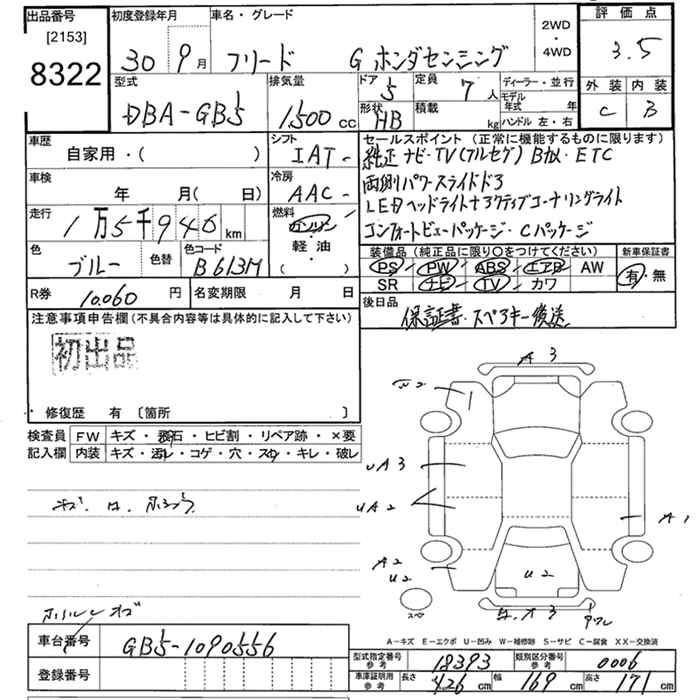 出品番号 初度登録年月 車名・グレード 2WD・4WD 評価点
[2153]
8322
30 9月 フリード G ホンダセンシング 3.5
外装 内装
C B
型式 排気量 ドア 定員 ディーラー・並行
DBA-GB5 1,500cc 5 7人 モデル年式 年
形状 積載
HB kg ハンドル 左・右
車歴 シフト セールスポイント (正常に機能するものに限ります)
自家用・( ) IAT
純正ナビ・TV(フルセグ) Bカメ・ETC
車検 冷房
年 月( 日) AAC
両側パワースライドドア
走行 燃料
1万5千946km ガソリン
LEDヘッドライト アクティブコーナリングライト
軽油
( )
コンフォートビューパッケージ・Cパッケージ
色 色替 色コード
ブルー B613M
装備品 (純正品に限り○をつけてください) 新車保証書
PS・PW・ABS・エアB・AW
SR・ナビ・TV・カワ
有・無
R券 10,060円 名変期限 月 日
後日品
保証書・スペアキー後送
注意事項申告欄(不具合内容等は具体的に記入して下さい)
初出品
・修復歴 有 〔箇所 〕
検査員 FW キズ・飛石・ヒビ割・リペア跡・×要
記入欄 内装 キズ・汚れ・コゲ・穴・スレ・キレ・破レ
A3
A3
UA2
A1
A2
U2
U2
スペ
A3
車台番号 GB5-1090556
登録番号
A-キズ E-エクボ U-凹み W-補修跡 S-サビ C-腐食 XX-交換済
型式指定番号 参考 18393 類別区分番号 参考 0006
車庫証明用 参考 長さ 426cm 幅 169cm 高さ 171cm